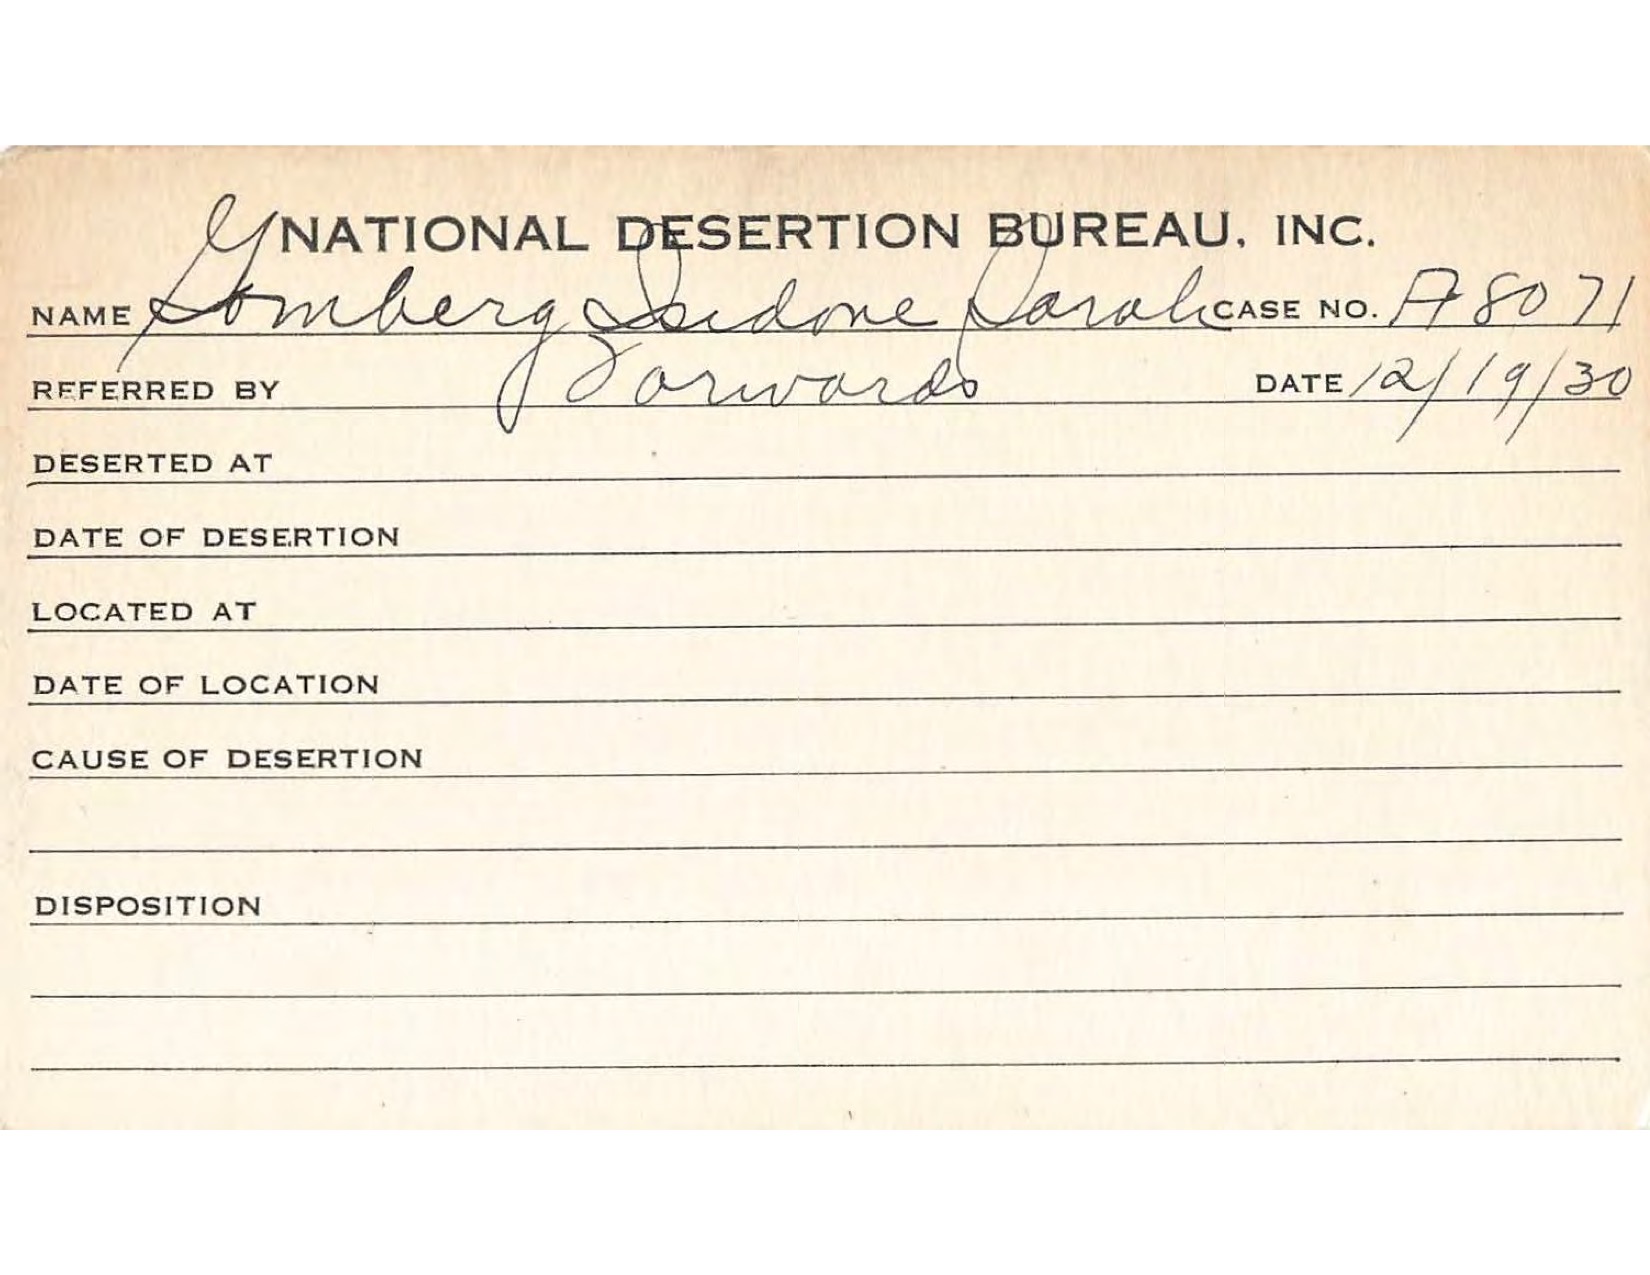 NATIONAL DESERTION BUREAU, INC.
NAME Gomberg Isidore Sarah CASE NO. A8071
REFERRED BY Forwards DATE 12/19/30
DESERTED AT
DATE OF DESERTION
LOCATED AT
DATE OF LOCATION
CAUSE OF DESERTION
DISPOSITION